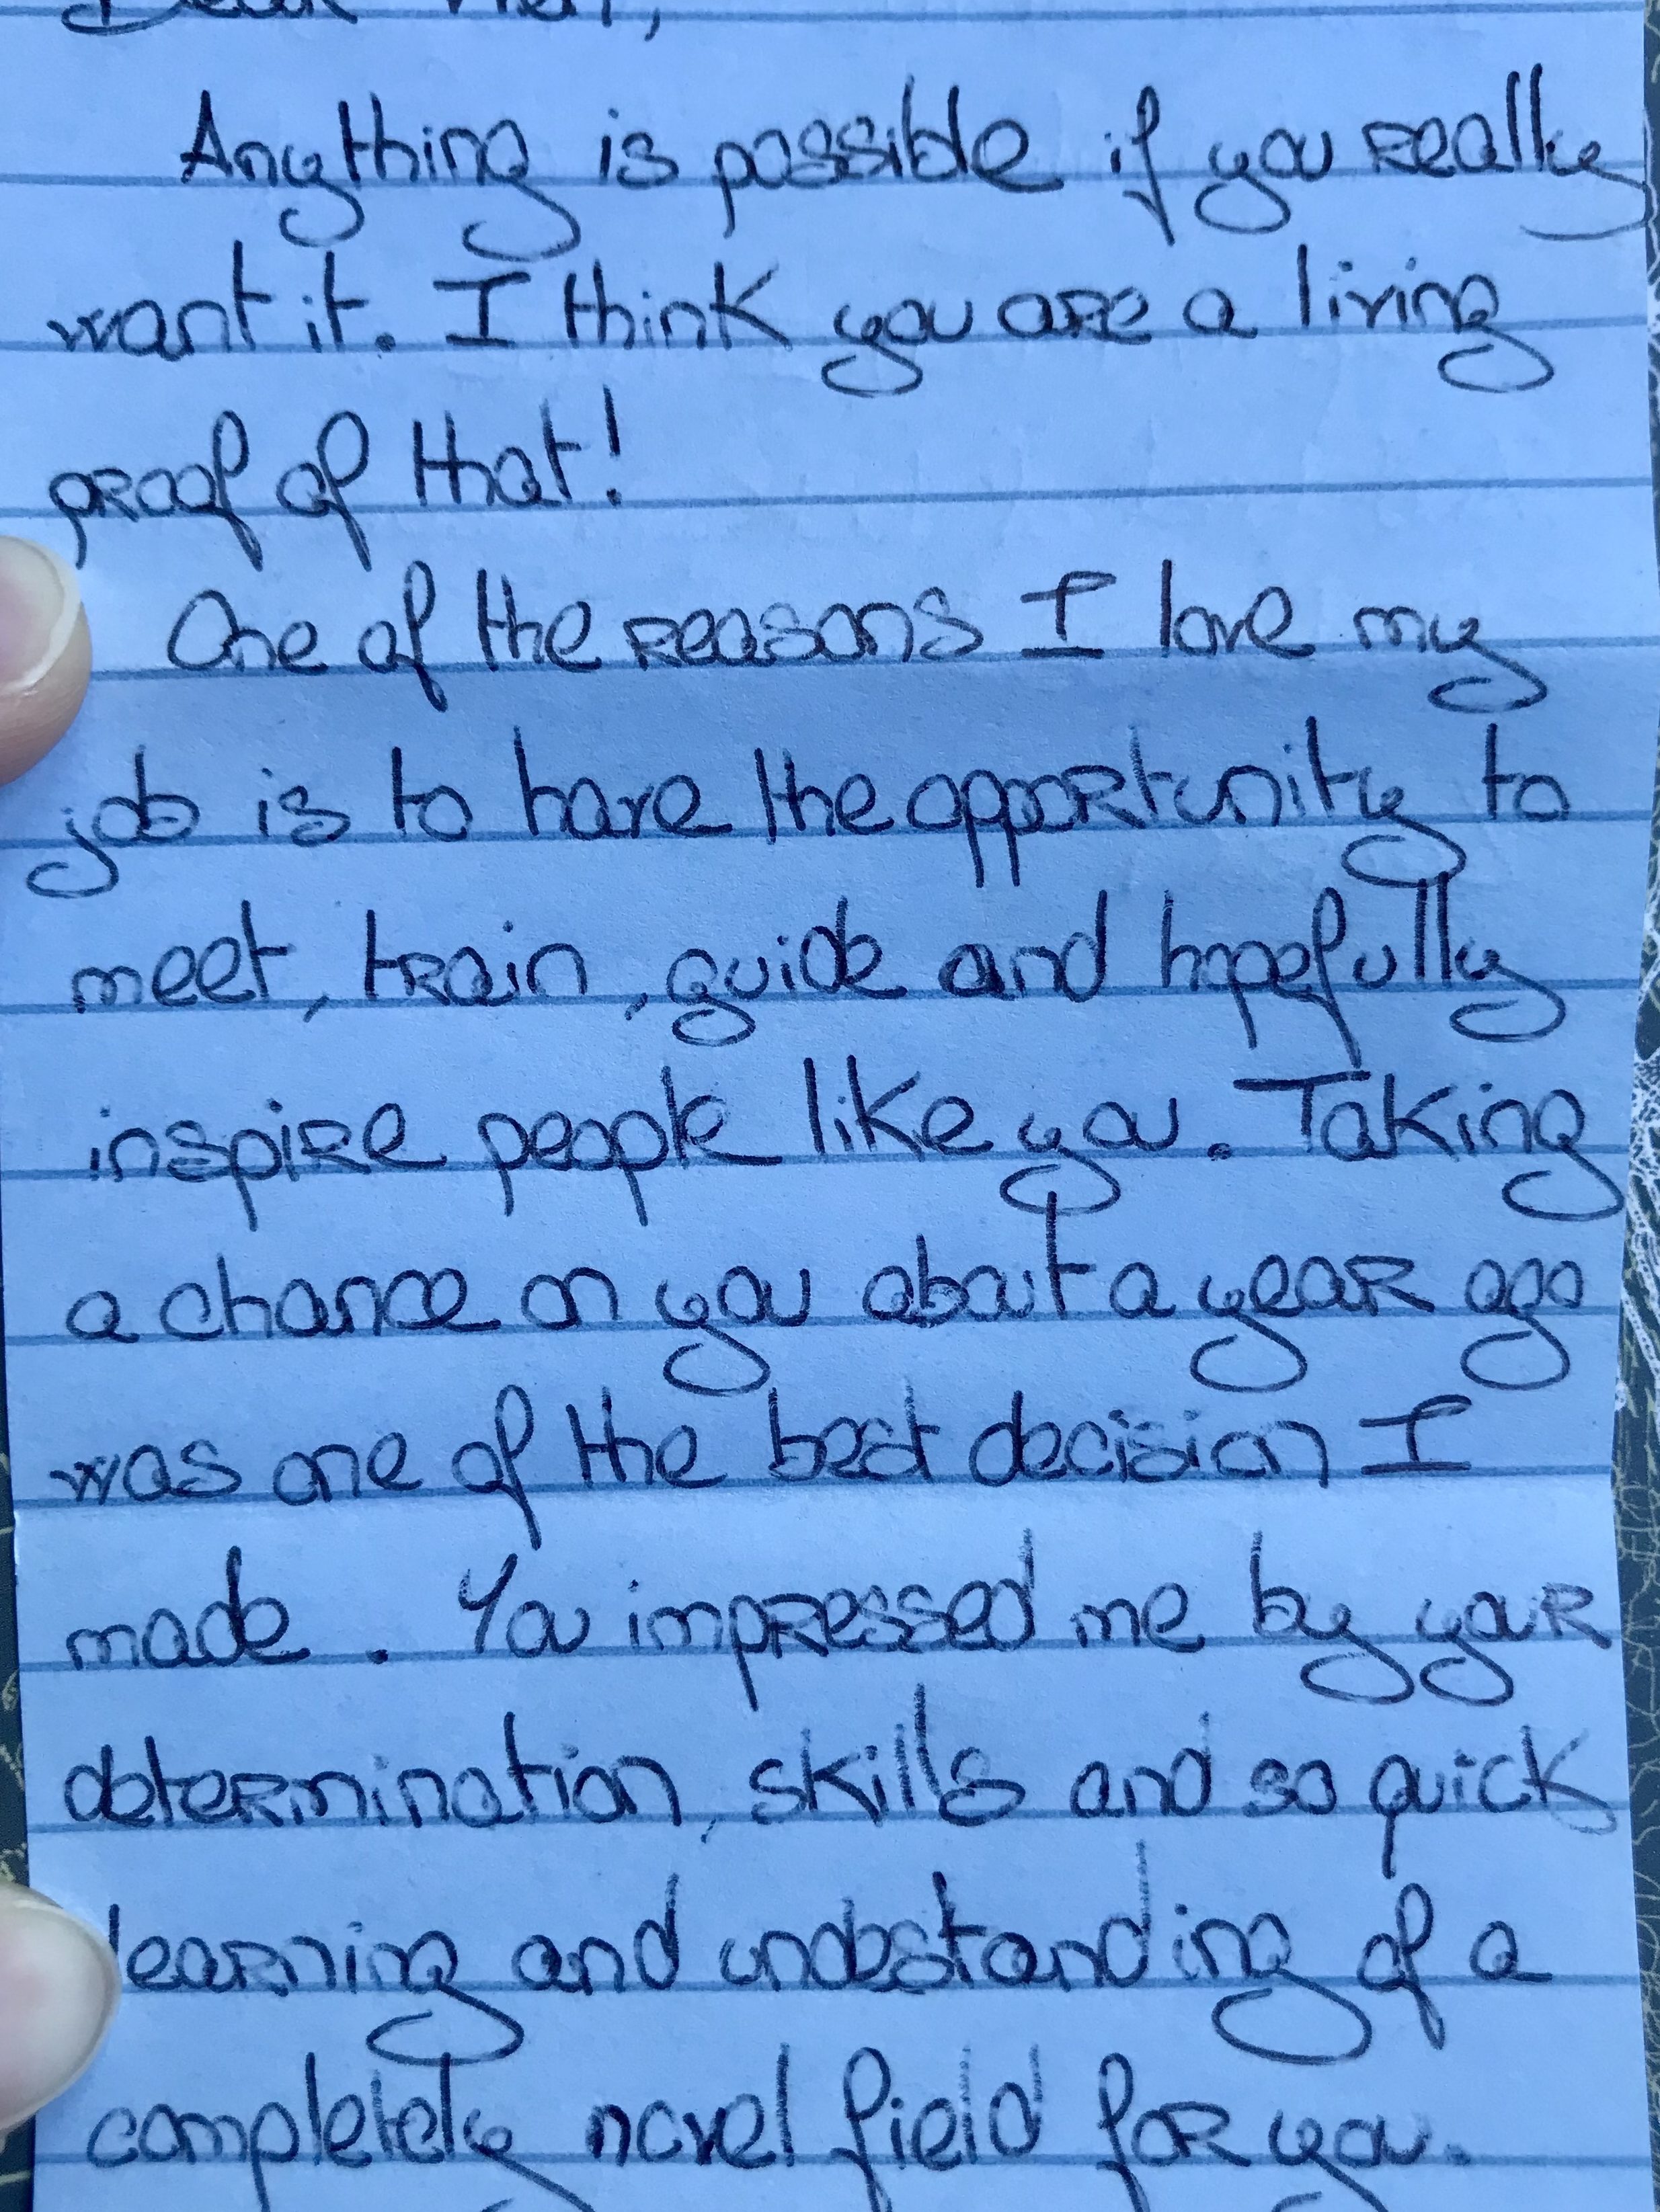 Dear
Anything is possible if you really
want it. I think you are a living
proof of that!
One of the reasons I love my
job is to have the opportunity to
meet, train, guide and hopefully
inspire people like you. Taking
a chance on you about a year ago
was one of the best decision I
made. You impressed me by your
determination, skills and so quick
learning and undestanding of a
completely novel field for you.